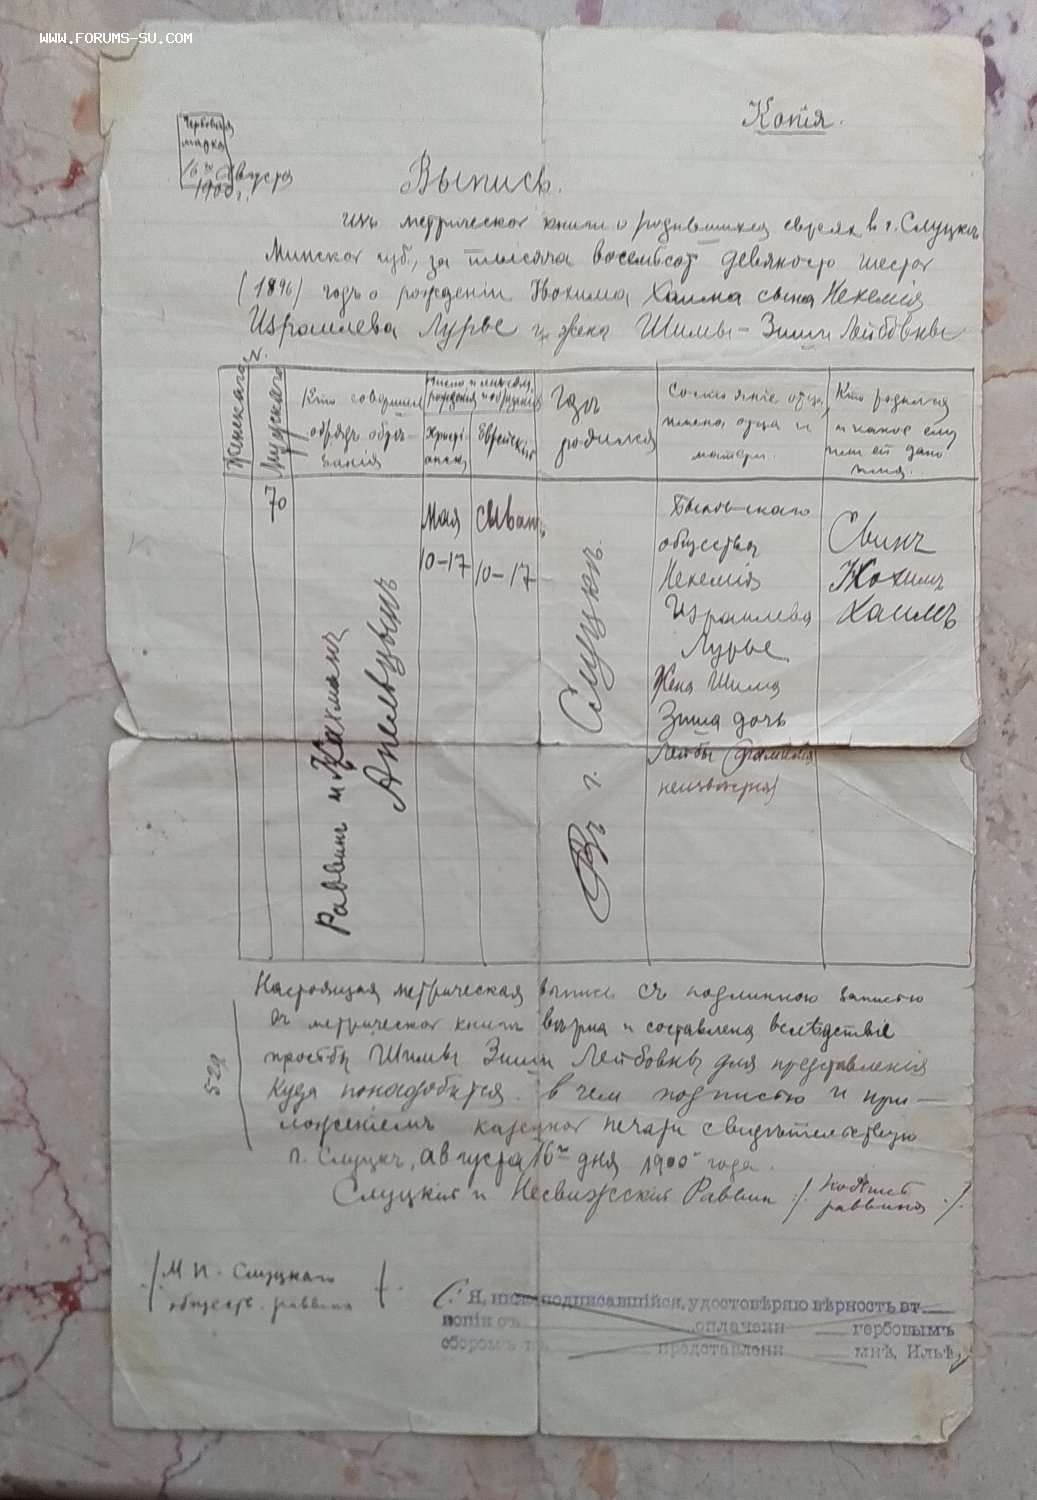 WWW.FORUMS-SU.COM
Копія.
Гербовая
марка
16го Августа
1900 г.
Выпись.
изъ метрической книги о родившихся евреях в г. Слуцкѣ
Минской губ., за тысяча восемьсот девяносто шестой
(1896) годъ о рожденіи Іохима Хаима сына Нехемія
Израилева Лурье и жена Шимы-Зиши Лейбовны
Женскаго
Мужскаго
№.
Кто совершал
обрядъ обрѣ-
занія
Число и мѣсяц
рожденія и обрѣзанія
Христі-
анскій
Еврейскій
Гдѣ
родился
Состояніе отца,
имена отца и
матери.
Кто родился
и какое ему
или ей дано
имя.
70
Раввинъ и Нахманъ
Апельцынъ
Мая
10-17
Сыванъ
10-17
Въ г. Слуцкѣ
общества
Нехемія
Израилева
Лурье
Жена Шима
Зиша дочь
Лейбы (фамилія
неизвѣстна)
Сынъ
Іохимъ
Хаимъ
Настоящая метрическая выпись съ подлинною записью
въ метрической книгѣ вѣрна и составлена вслѣдствіе
просьбы Шимы Зиши Лейбовны для представленія
куда понадобится. в чем подписью и при-
ложеніемъ казенной печати свидѣтельствую
г. Слуцкъ, августа 16го дня 1900 года.
529
Слуцкій и Несвижскій Раввин /. подпись
раввина ./
/ М П. Слуцкаго
обществ. раввина /.
Я, нижеподписавшійся, удостовѣряю вѣрность эт
копіи съ оплаченн гербовымъ
сборомъ представленн мнѣ, Ильѣ,